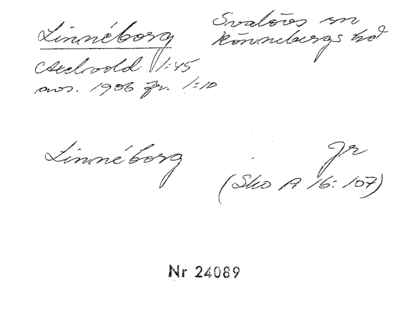 Linnéborg
Svalövs sn
Rönnebergs hd
Axelvold 1:45
avs. 1906 fr. 1:10
Linnéborg
Jr
(Sko A 16:107)
Nr 24089